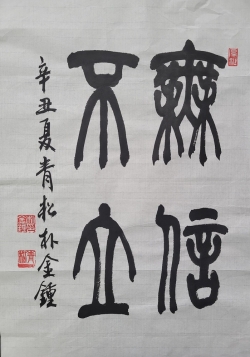 無信
不立
辛丑夏青松朴金鍾